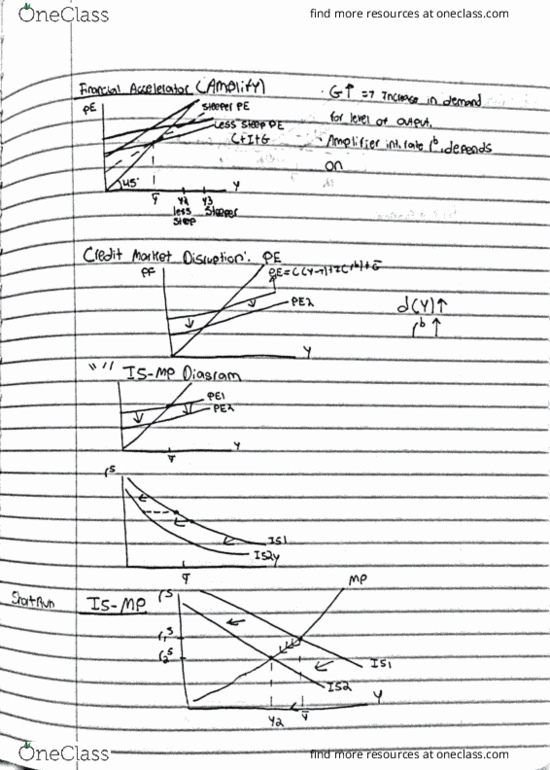 OneClass
find more resources at oneclass.com
Financial Accelerator (Amplify)
PE
steeper PE
Less steep PE
C+I+G
45°
Y
Ȳ Y2 Y3
less steeper
steep
· G↑ => Increase in demand
for level of output.
- Amplifier int. rate r^b, depends
on
Credit Market Disruption: PE
PE
PE=C(Y-T)+I(r^b)+G̅
PE2
Y
d(Y)↑
r^b↑
"" IS-MP Diagram
PE1
PE2
Y
Ȳ
r^s
IS1
IS2 Y
Ȳ
Short Run
IS-MP
r^s
MP
r1^s
r2^s
IS1
IS2
Y
Y2 Ȳ
OneClass
find more resources at oneclass.com